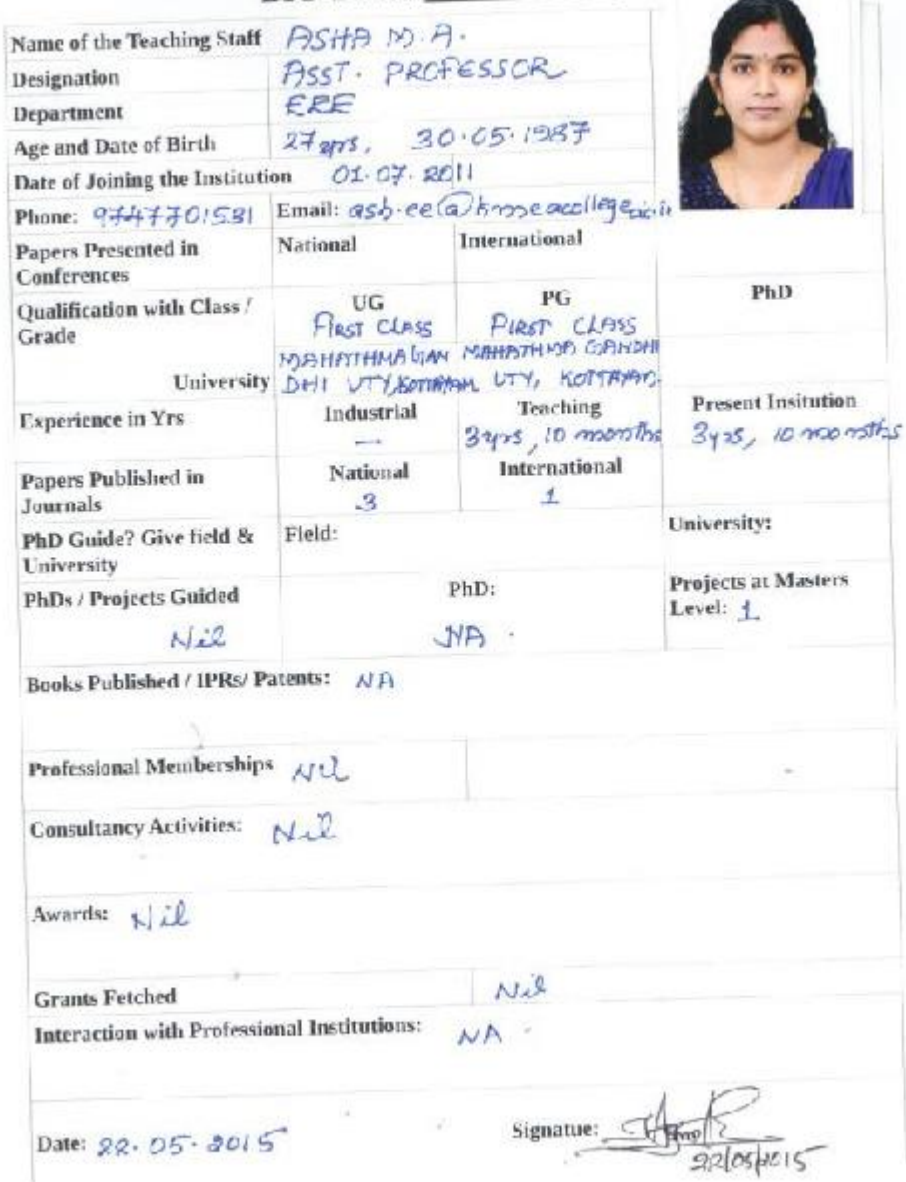 Name of the Teaching Staff ASHA M.A.
Designation ASST. PROFESSOR
Department EEE
Age and Date of Birth 27 yrs, 30.05.1987
Date of Joining the Institution 01.07.2011
Phone: 9747701531 Email:
Papers Presented in Conferences National International
Qualification with Class / Grade UG FIRST CLASS PG FIRST CLASS PhD
University MAHATHMA GANDHI UTY, KOTTAYAM MAHATHMA GANDHI UTY, KOTTAYAM.
Experience in Yrs Industrial — Teaching 3 yrs, 10 months Present Insitution 3 yrs, 10 months
Papers Published in Journals National 3 International 1
PhD Guide? Give field & University Field: University:
PhDs / Projects Guided Nil PhD: NA. Projects at Masters Level: 1
Books Published / IPRs/ Patents: NA
Professional Memberships Nil
Consultancy Activities: Nil
Awards: Nil
Grants Fetched Nil
Interaction with Professional Institutions: NA
Date: 22.05.2015 Signatue:
22/05/2015